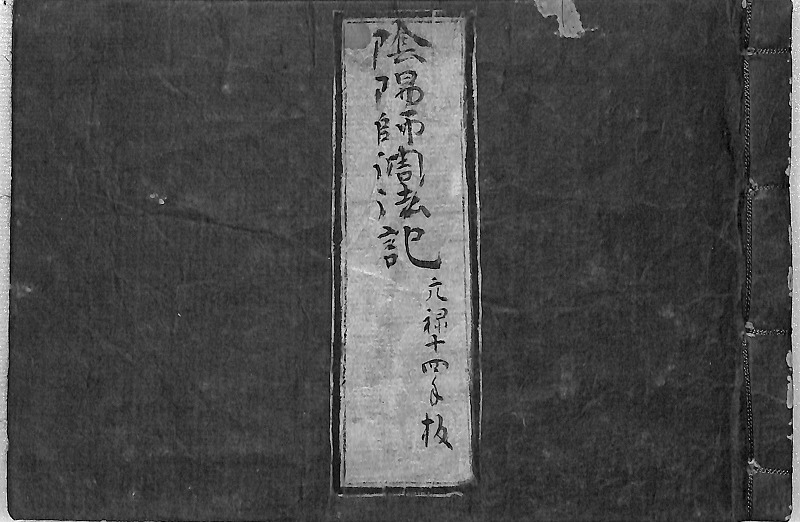 陰陽師調法記
元禄十四年板